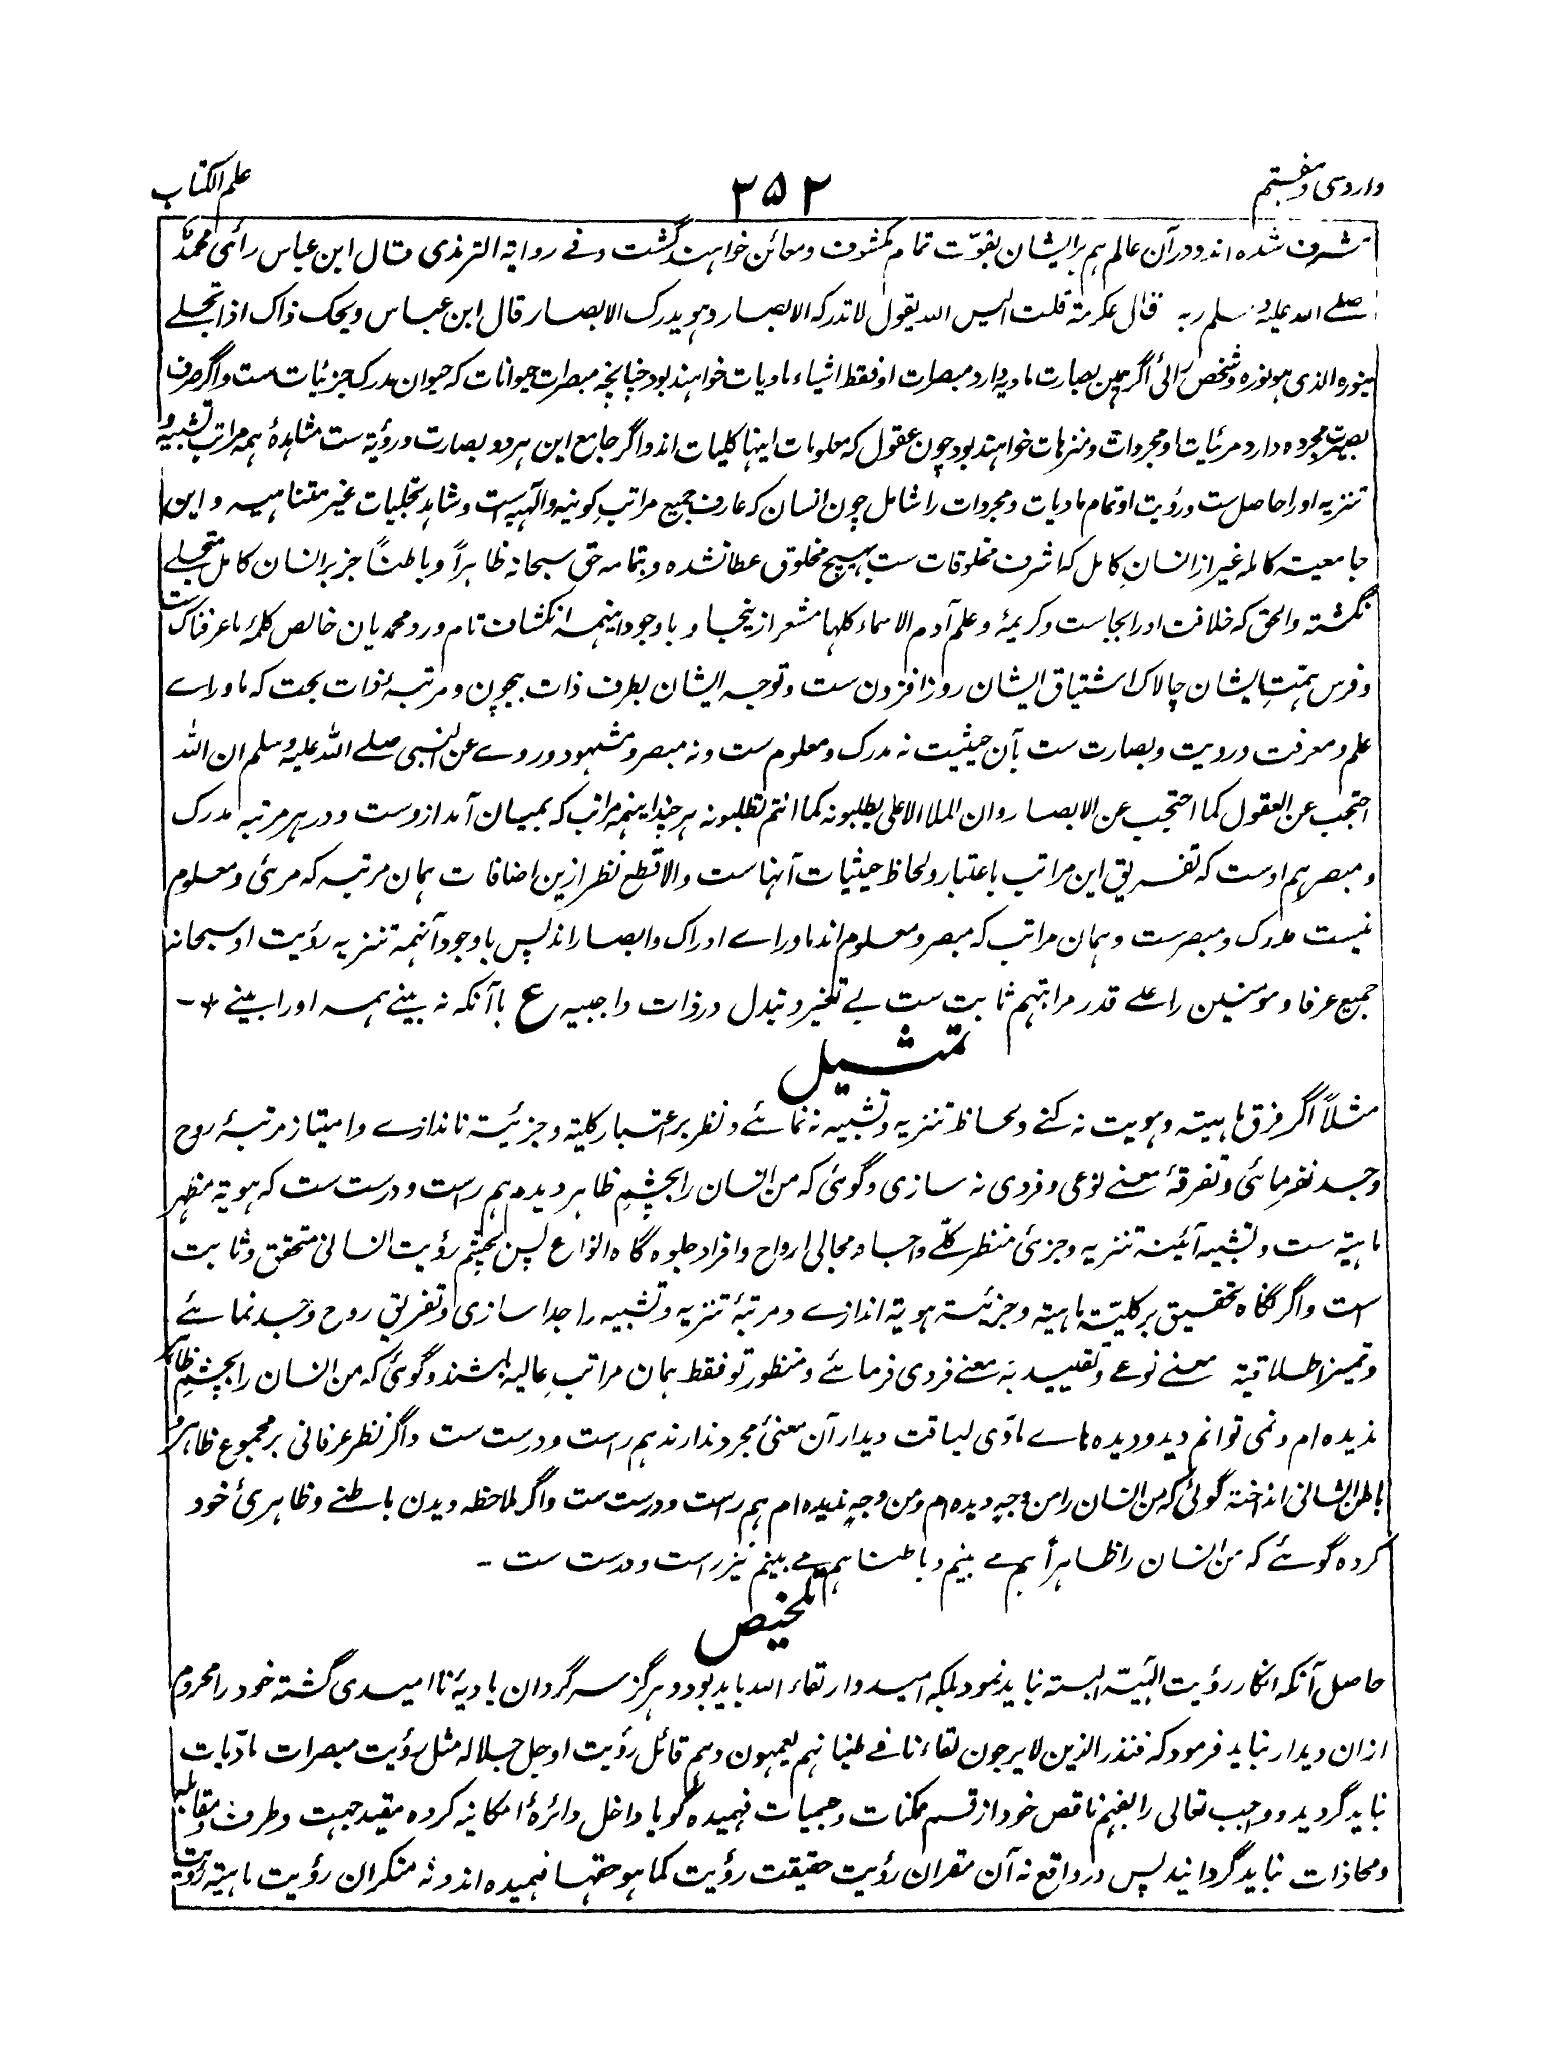 وارد سی و هفتم
۳۵۲
علم الکتاب
مشرف شده اند و در آن عالم هم بر ایشان بقوّت تمام مکشوف و معائن خواهند گشت و فے روایة الترمذی قال ابن عباس رأی محمدٌ
صلے الله علیه وسلم ربه فقال عکرمة قلت الیس الله یقول لا تدرکه الابصار و هو یدرک الابصار قال ابن عباس ویحک ذاک اذا تجلے
بنوره الذی هو نوره و شخص رائی اگر همین بصارت مادیه دارد مبصرات او فقط اشیاء مادیات خواهند بود چنانچه مبصرات حیوانات که حیوان مدرک جزئیات ست و اگر صرف
بصیرت مجرده دارد مرئیات او مجردات و منزهات خواهند بود چون عقول که معلومات اینها کلیات اند و اگر جامع این هر دو بصارت و رؤیة ست مشاهدهٔ همه مراتب تشبیه و
تنزیه او را حاصل ست و رؤیت او تمام مادیات و مجردات را شامل چون انسان که عارف جمیع مراتب کونیه و الٰهیه است و شاهد تجلیات غیر متناهیه و این
جامعیت کامله غیر از انسانِ کامل که اشرف مخلوقات ست بهیچ مخلوق عطا نشده و بتمامه حق سبحانه ظاهراً و باطناً جز بر انسان کامل متجلے
نگشته و الحق که خلافت او را بجاست و کریمهٔ و علم آدم الاسماء کلها مشعر از ینجا و با وجود اینهمه انکشاف تام ورد محمدیان خالص کلمهٔ ما عرفناک ست
و فرس همتِ ایشان چالاک اشتیاق ایشان روز افزون ست و توجه ایشان بطرف ذات بیچون و مرتبهٔ ذات بحت که ماوراے
علم و معرفت و رویت و بصارت ست بآن حیثیت نه مدرک و معلوم ست و نه مبصر و مشهود و روے عن النبی صلے الله علیه وسلم ان الله
احتجب عن العقول کما احتجب عن الابصار و ان الملا الاعلی یطلبونه کما انتم تطلبونه هر چند اینهمه مراتب که بمیان آمد ازوست و در هر مرتبه مدرک
و مبصر هم اوست که تفریق این مراتب باعتبار و لحاظ حیثیات آنهاست و الا قطع نظر ازین اضافات همان مرتبه که مرئی و معلوم
نیست مدرک و مبصرست و همان مراتب که مبصر و معلوم اند ماوراے ادراک و ابصار اند پس با وجود آنهمه تنزیه رؤیت او سبحانه
جمیع عرفا و مومنین را علے قدر مراتبهم ثابت ست بے تغیر و تبدل در ذات واجبیه ع با آنکه نه بینے همه او را بینے ٭ -
تمثیل
مثلاً اگر فرق ماهیته و هویت نه کنے و لحاظ تنزیه و تشبیه نه نمائے و نظر بر اعتبار کلیته و جزئیته نا ندازے و امتیاز مرتبهٔ روح
و جسد نفرمائی و تفرقهٔ معنے نوعی و فردی نه سازی و گوئی که من انسان را بچشمِ ظاهر دیده ام هم راست و درست ست که هویة مظهر
ماهیته ست و تشبیه آئینه تنزیه و جزئی منظر کلّے و اجساد مجالی ارواح و افراد جلوه گاه انواع پس بچشم رؤیت انسانی متحقق و ثابت
است و اگر نگاه تحقیق بر کلیّته ماهیته و جزئیته هویة اندازے و مرتبهٔ تنزیه و تشبیه را جدا سازی و تفریق روح و جسد نمائے
و تمیز اطلاقیة معنے نوعے و تقیید به معنے فردی فرمائے و منظور تو فقط همان مراتبِ عالیه باشند و گوئی که من انسان را بچشمِ ظاهر
ندیده ام و نمی توانم دید و دیده هاے مادّی لیاقت دیدار آن معنیٔ مجرد ندارند هم راست و درست ست و اگر نظر عرفانی بر مجموع ظاهر و
باطن انسانی انداخته گوئی که من انسان را من وجه دیده ام و من وجهٍ ندیده ام هم راست و درست ست و اگر ملاحظه دیدن باطنے و ظاهریٔ خود
کرده گوئے که من انسان را ظاهراً هم مے بینم و باطنا هم مے بینم نیز راست و درست ست -
تلخیص
حاصل آنکه انکار رؤیت الٰهیّه البته نباید نمود بلکه امیدوار لقاء الله باید بود و هرگز سرگردان بادیهٔ نا امیدی گشته خود را محروم
از ان دیدار نباید فرمود که فنذر الذین لا یرجون لقاءنا فے طغیانهم یعمهون و هم قائل رؤیت او جل جلاله مثل رؤیت مبصرات مادّیات
نباید گردید و واجب تعالی را بفهم ناقص خود از قسم ممکنات و جمیات فهمیده گویا داخل دائرهٔ امکانیه کرده مقید جهت و طرف و مقابله
و محاذات نباید گردانید پس در واقع نه آن مقران رؤیت حقیقت رؤیت کما هو حقها فهمیده اند و نه منکران رؤیت ماهیته رؤیت